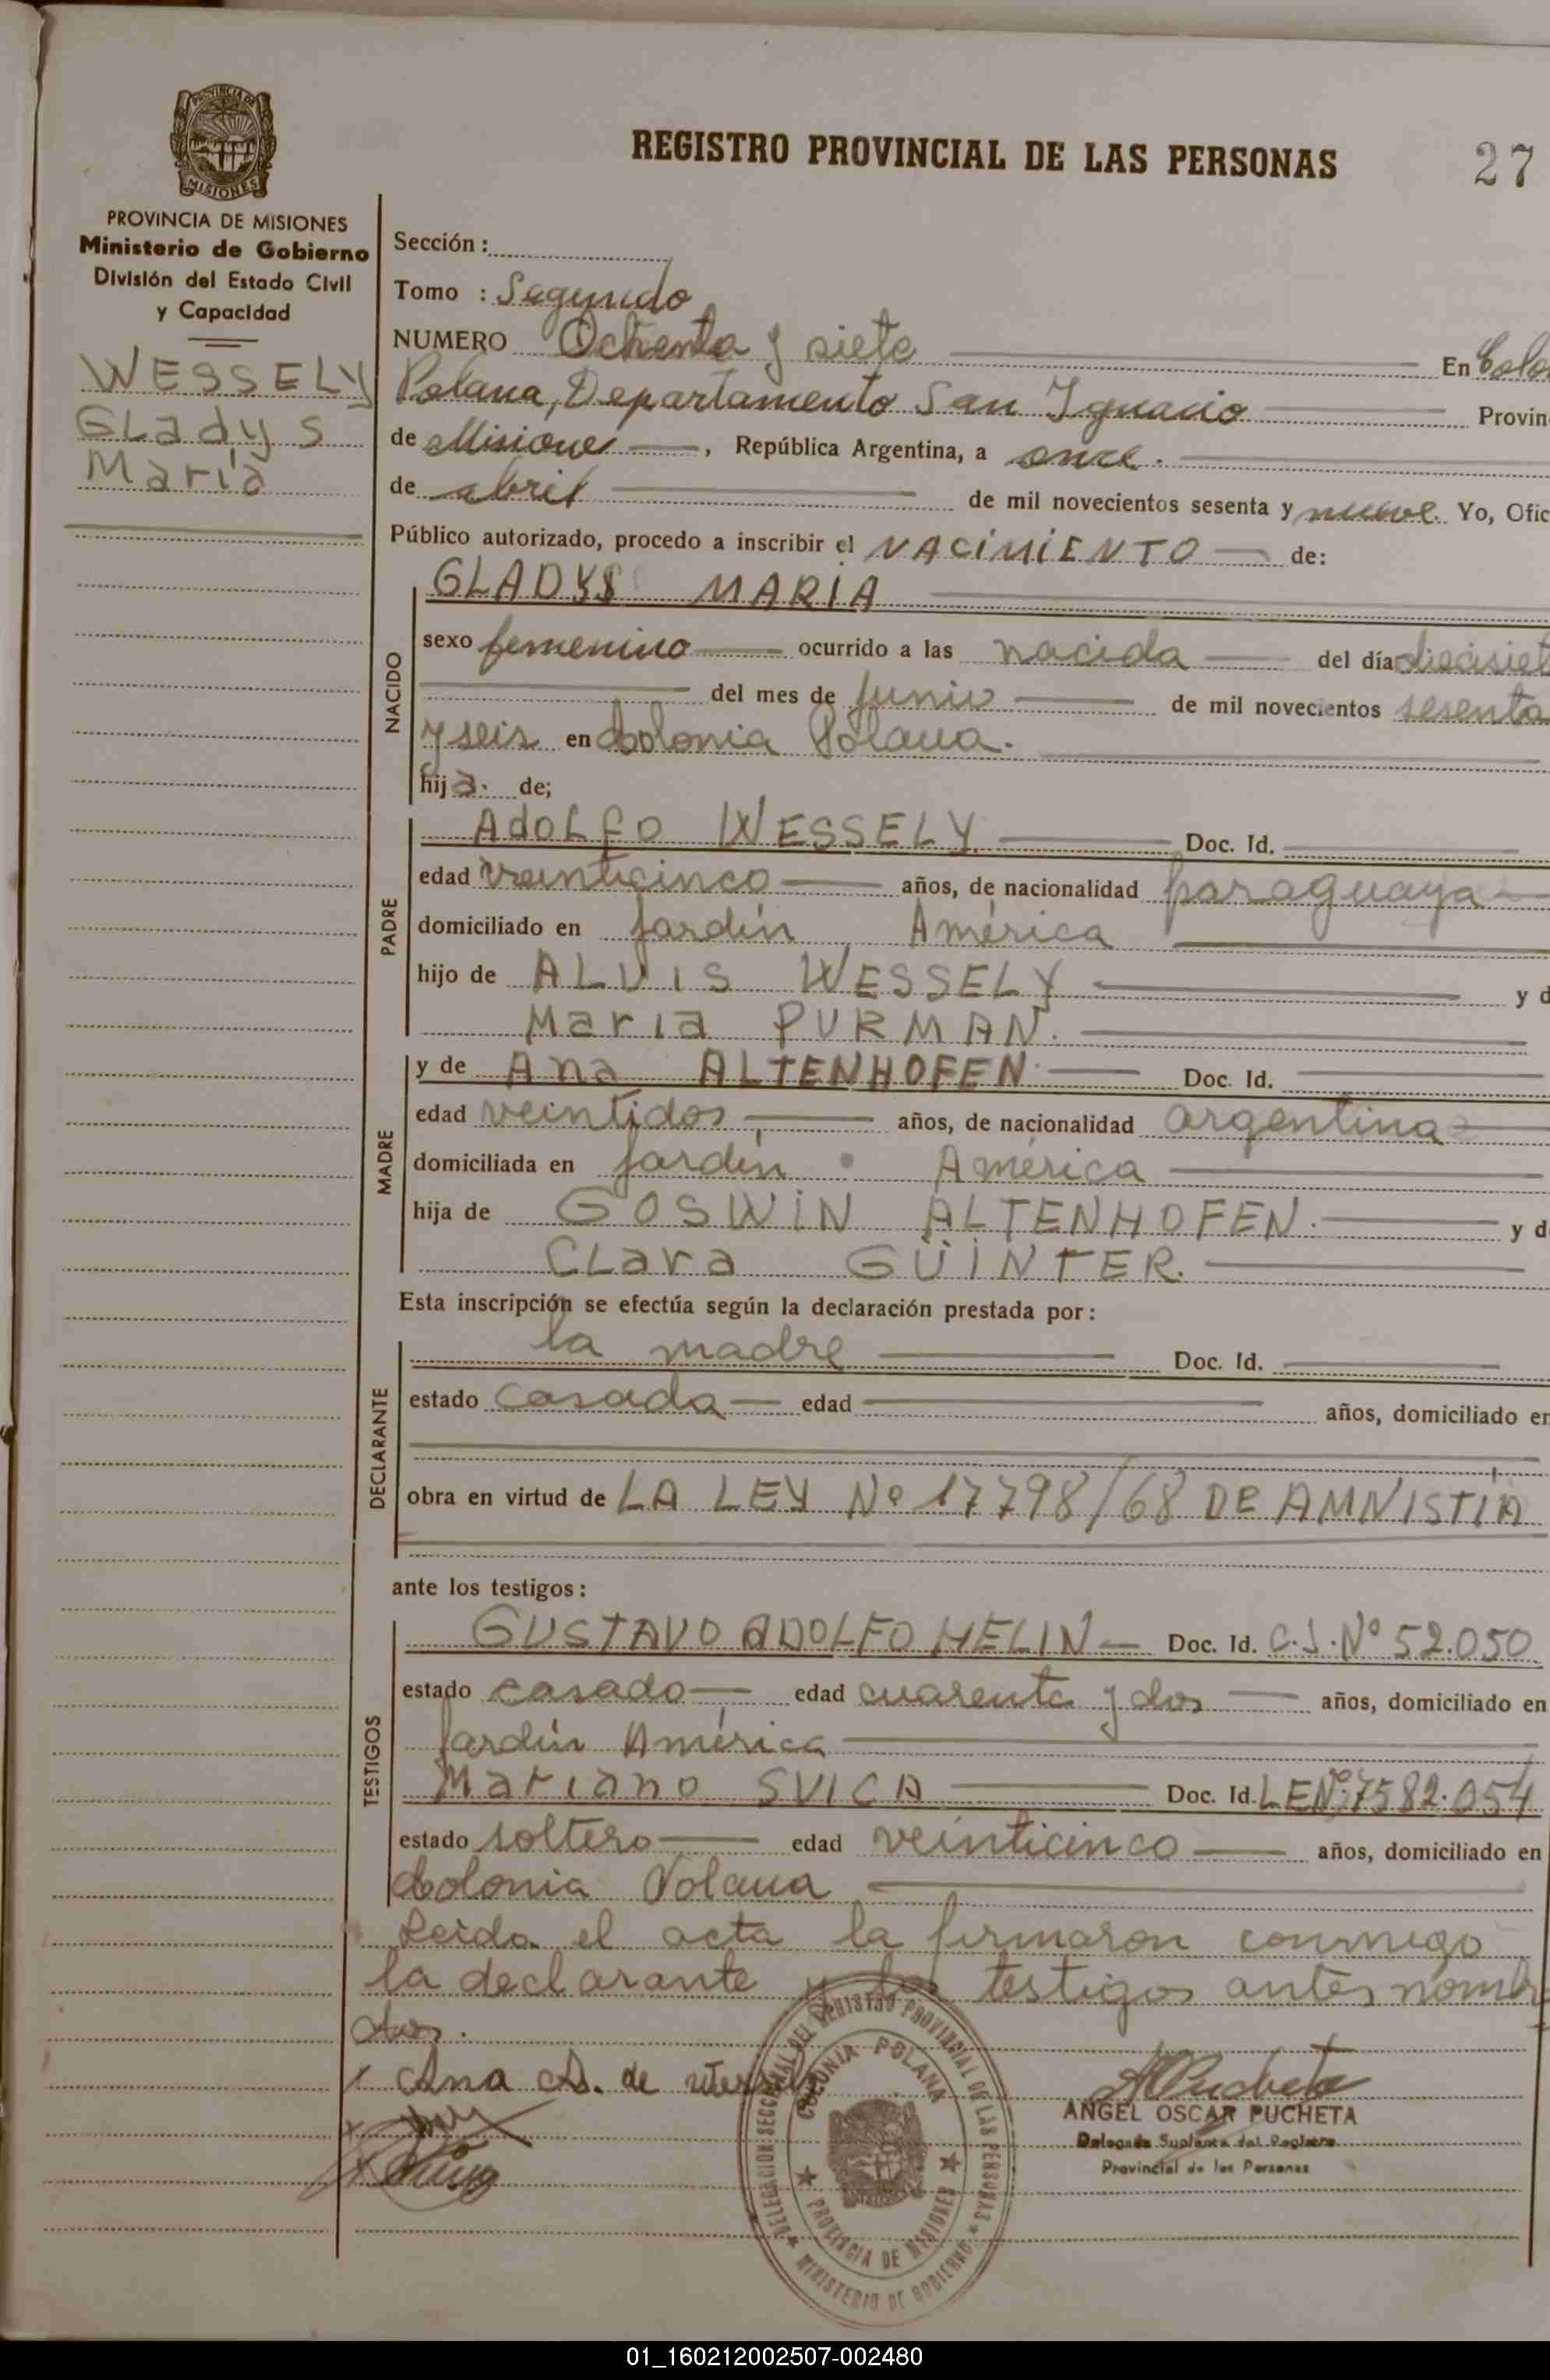 REGISTRO PROVINCIAL DE LAS PERSONAS
27
PROVINCIA DE
MISIONES
PROVINCIA DE MISIONES
Ministerio de Gobierno
División del Estado Civil
y Capacidad
WESSELY
GLadys
María
Sección :
Tomo : Segundo
NUMERO Ochenta y siete En Colo
Polana, Departamento San Ignacio Provin
de Misiones, República Argentina, a once.
de abril de mil novecientos sesenta y nueve. Yo, Ofic
Público autorizado, procedo a inscribir el NACIMIENTO de:
NACIDO
GLADYS MARIA
sexo femenino ocurrido a las nacida del día diecisiet
del mes de Junio de mil novecientos sesenta
y seis en Colonia Polana.
hija. de;
PADRE
AdoLfo WESSELY Doc. Id.
edad veinticinco años, de nacionalidad paraguaya
domiciliado en Jardín América
hijo de ALUIS WESSELY y d
Maria PURMAN.
MADRE
y de Ana ALTENHOFEN Doc. Id.
edad veintidos años, de nacionalidad argentina
domiciliada en Jardín América
hija de GOSWIN ALTENHOFEN. y d
CLara GÜINTER.
Esta inscripción se efectúa según la declaración prestada por :
DECLARANTE
la madre Doc. Id.
estado casada edad años, domiciliado en
obra en virtud de LA LEY Nº 17798/68 DE AMNISTÍA
ante los testigos :
TESTIGOS
GUSTAVO ADOLFO HELIN Doc. Id. C.I. Nº 52.050
estado casado edad cuarenta y dos años, domiciliado en
Jardín América
Mariano SVICA Doc. Id. LE Nº 7582.054
estado soltero edad veinticinco años, domiciliado en
Colonia Polana
Leida el acta la firmaron conmigo
la declarante y los testigos antes nombr
dos.
Ana A. de
DELEGACION SECCIONAL DEL REGISTRO PROVINCIAL DE LAS PERSONAS
COLONIA POLANA
PROVINCIA DE MISIONES
MINISTERIO DE GOBIERNO
APucheta
ANGEL OSCAR PUCHETA
Delegado Suplente del Registro
Provincial de las Personas
01_160212002507-002480